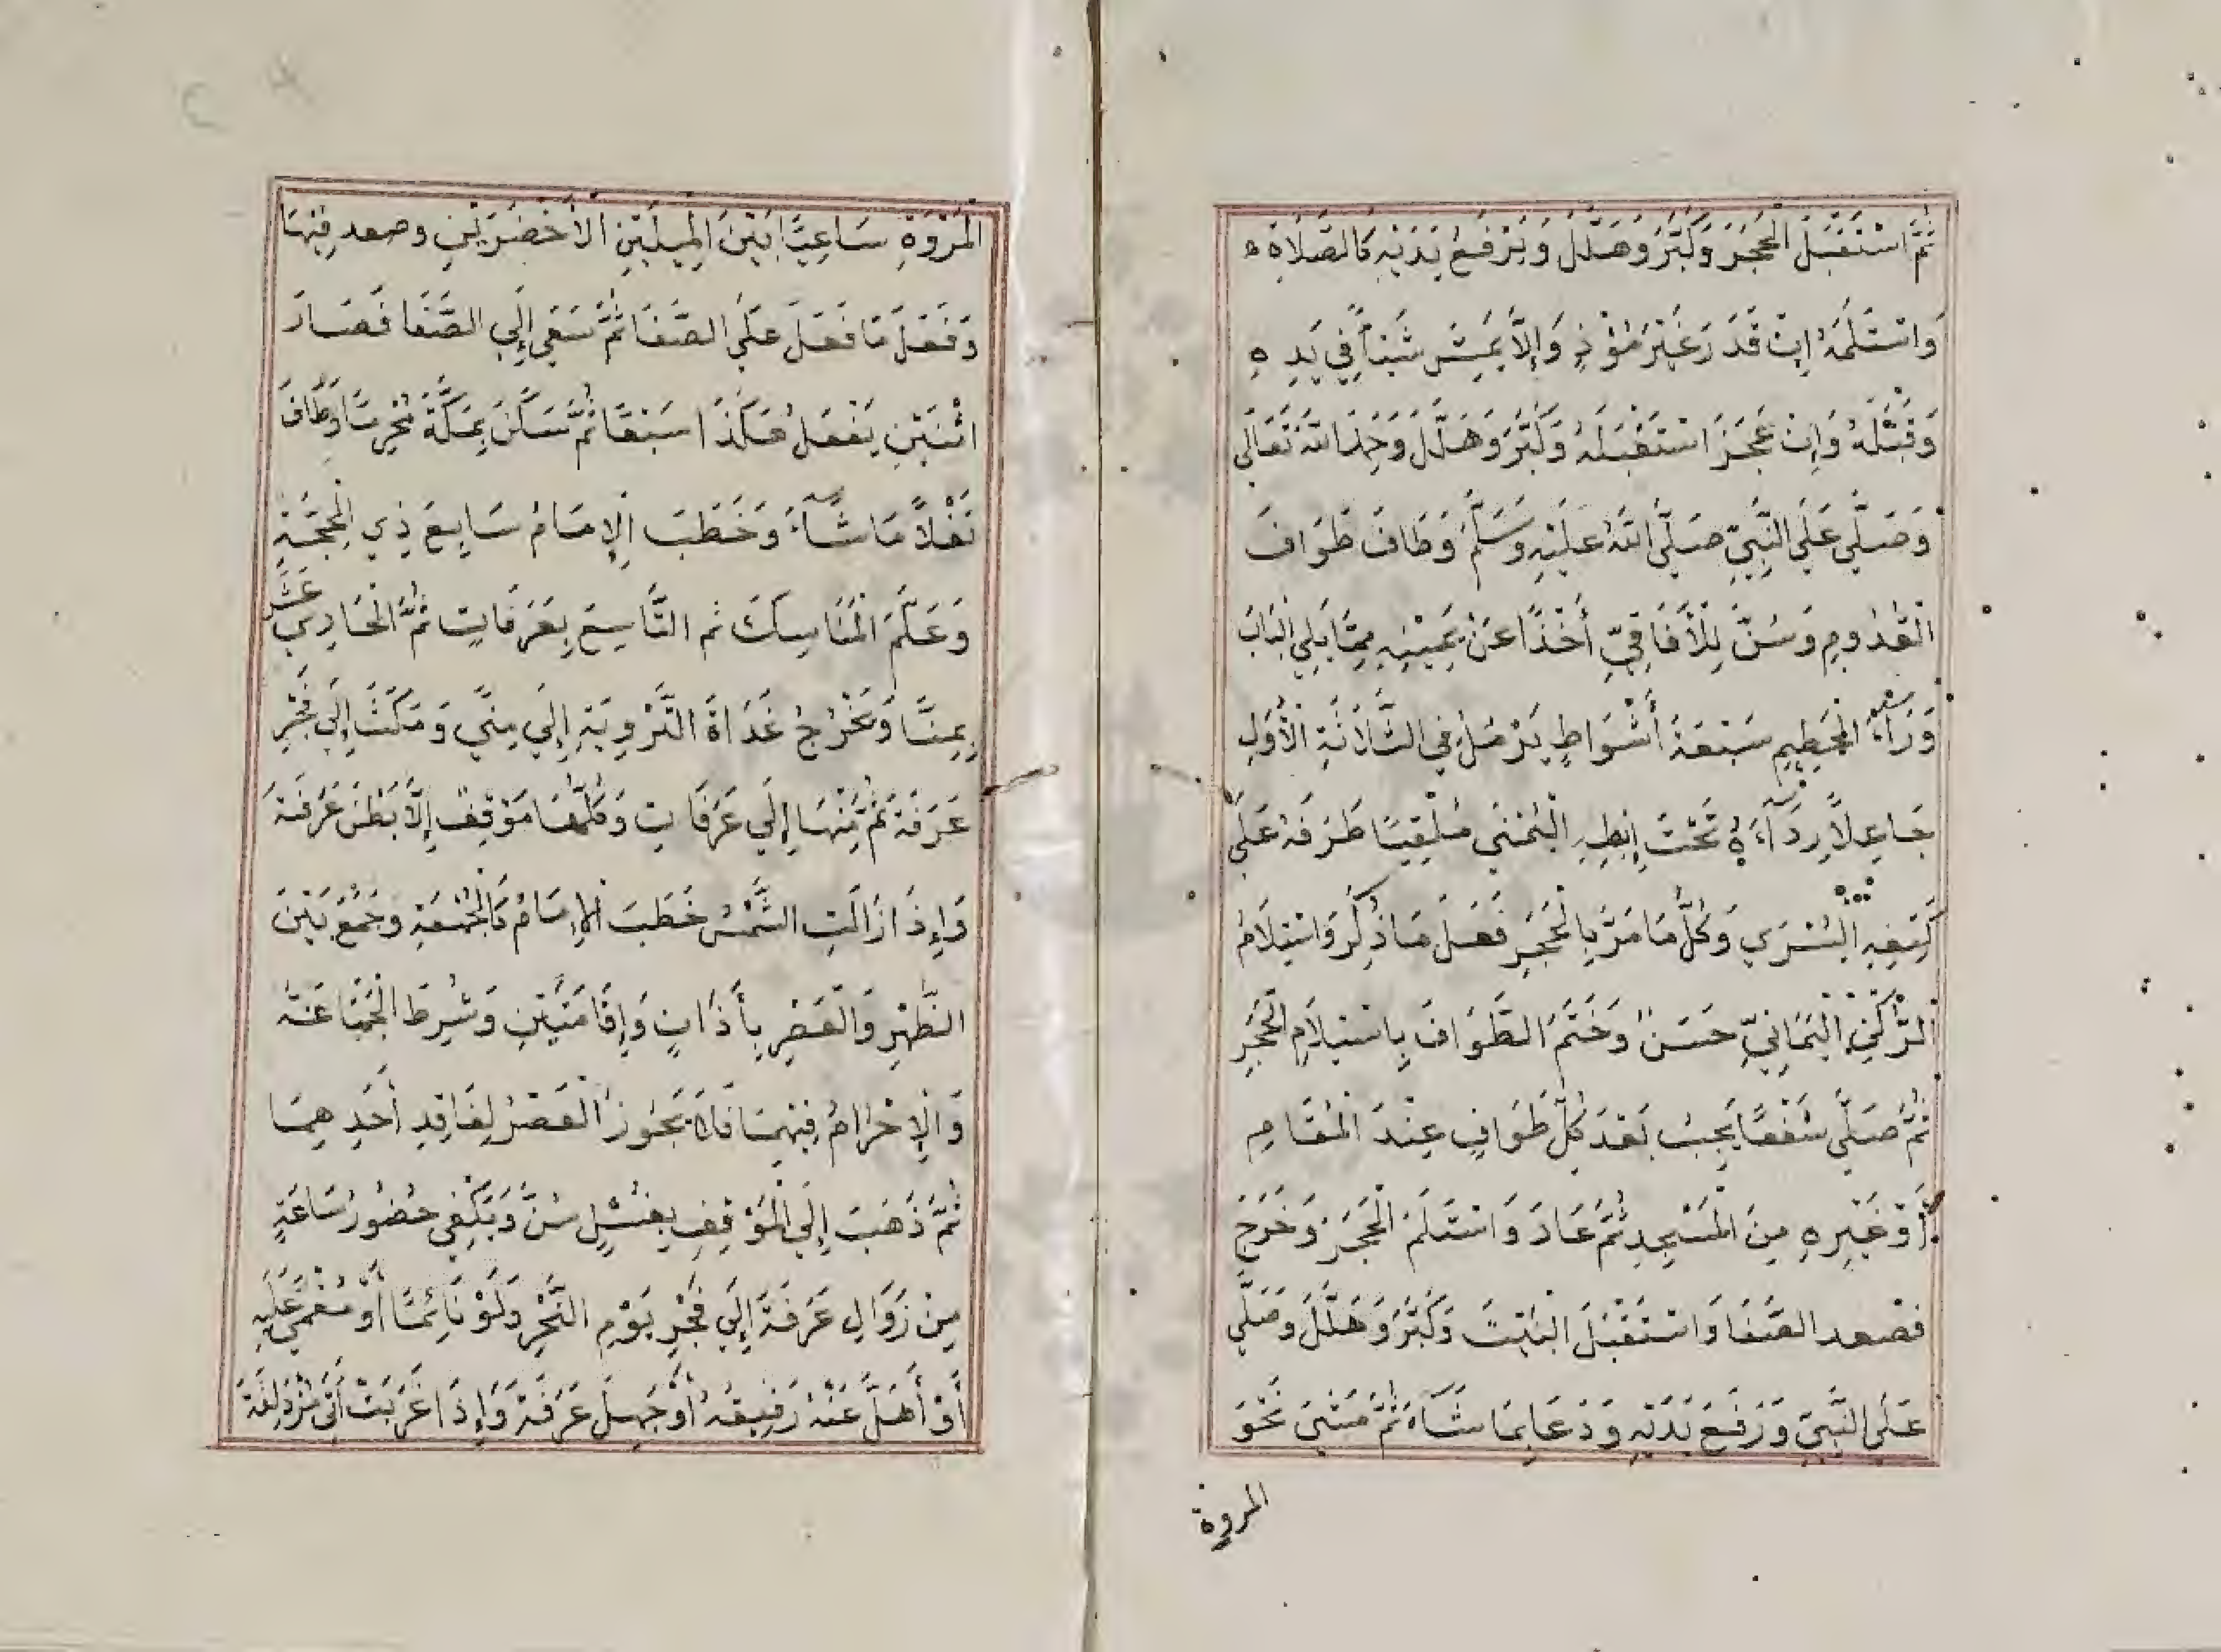 ثُمَّ اسْتَقْبَلَ الْحَجَرَ وَكَبَّرَ وَهَلَّلَ وَيَرْفَعُ يَدَيْهِ كَالصَّلَاةِ
وَاسْتَلَمَهُ إِنْ قَدَرَ غَيْرَ مُؤْذٍ وَإِلَّا يَمَسُّ شَيْئاً فِي يَدِهِ
وَقَبَّلَهُ وَإِنْ عَجَزَ اسْتَقْبَلَهُ وَكَبَّرَ وَهَلَّلَ وَحَمِدَ اللهَ تَعَالَى
وَصَلَّي عَلَي النَّبِيِّ صَلَّي اللهُ عَلَيْهِ وَسَلَّمَ وَطَافَ طَوَافَ
الْقُدُومِ وَسُنَّ لِلْأَفَاقِيِّ أَخْذًا عَنْ يَمِيْنِهِ مِمَّا يَلِي الْبَابَ
وَرَاءَ الْحَطِيمِ سَبْعَةَ أَشْوَاطٍ يَرْمُلُ فِي الثَّلَاثَةِ الْأُوَلِ
جَاعِلاً رِدَآءَهُ تَحْتَ إِبْطِهِ الْيُمْنَي مُلْقِيًا طَرَفَهُ عَلَي
كَتِفِهِ الْيُسْرَي وَكُلَّمَا مَرَّ بِالْحَجَرِ فَعَلَ مَا ذُكِرَ وَاسْتِلَامُ
الرُّكْنِ الْيَمَانِيِّ حَسَنٌ وَخَتَمَ الطَّوَافَ بِاسْتِيلَامِ الْحَجَرِ
ثُمَّ صَلَّي شَفْعًا يَجِبُ بَعْدَ كُلِّ طَوَافٍ عِنْدَ الْمَقَامِ
أَوْ غَيْرِهِ مِنَ الْمَسْجِدِ ثُمَّ عَادَ وَاسْتَلَمَ الْحَجَرَ وَخَرَجَ
فصعد الصَّفَا وَاسْتَقْبَلَ الْبَيْتَ وَكَبَّرَ وَهَلَّلَ وَصَلَّي
عَلَي النَّبِيِّ وَرَفَعَ يَدَيْهِ وَدَعَا بِمَا شَآءَ ثُمَّ مَشَيَ نَحْوَ
المروة
الْمَرْوَةِ سَاعِيًا بَيْنَ الْمِيلَيْنِ الْأَخْضَرَيْنِ وصعد فِيْهَا
وَفَعَلَ مَا فَعَلَ عَلَي الصَّفَا ثُمَّ سَعَي إِلَي الصَّفَا فَصَارَ
اثْنَيْنِ يَفْعَلُ هَكَذَا سَبْعًا ثُمَّ سَكَنَ بِمَكَّةَ مُحْرِمًا وَطَافَ
نَفْلاً مَا شَآءَ وَخَطَبَ الْإِمَامُ سَابِعَ ذِي الْحِجَّةِ
وَعَلَّمَ الْمَنَاسِكَ ثم التَّاسِعَ بِعَرَفَاتٍ ثُمَّ الْحَادِي عَشَرَ
بِمِنًا وَيَخْرُجُ غَدَاةَ التَّرْوِيَةِ إِلَي مِنًي وَمَكَثَ إِلَي فَجْرِ
عَرَفَةَ ثُمَّ مِنْهَا إِلَي عَرَفَاتٍ وَكُلُّهَا مَوْقِفٌ إِلَّا بَطْنَ عَرَفَةَ
وَإِذَا زَالَتِ الشَّمْسُ خَطَبَ الْإِمَامُ كَالْجُمُعَةِ وَجَمَعَ بَيْنَ
الظُّهْرِ وَالْعَصْرِ بِأَذَانٍ وَإِقَامَتَيْنِ وَشُرِطَ الْجَمَاعَةُ
وَالْإِحْرَامُ فِيْهِمَا فَلَا يَجُوزُ الْعَصْرُ لِفَاقِدِ أَحَدِهِمَا
ثُمَّ ذَهَبَ إِلَي الْمَوْقِفِ بِغُسْلٍ سُنَّ وَيَكْفِي حُضُورُ سَاعَةٍ
مِنْ زَوَالِ عَرَفَةَ إِلَي فَجْرِ يَوْمِ النَّحْرِ وَلَوْ نَائِمًا أَوْ مُغْمًي عَلَيْهِ
أَوْ أَهَلَّ عَنْهُ رَفِيقُهُ أَوْ جَهِلَ عَرَفَةَ وَإِذَا غَرَبَتْ أَتَى مُزْدَلِفَةَ